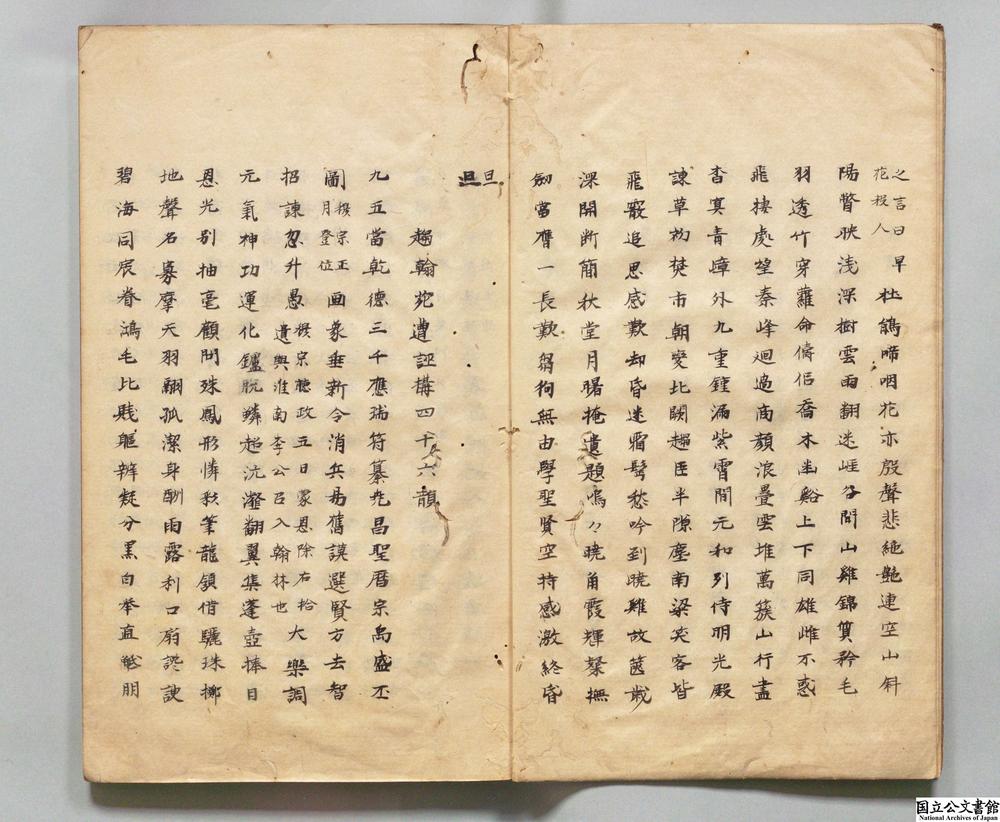 之言曰早
花投人 杜鵑啼咽花亦殷聲悲絶艶連空山斜
陽瞥映浅深樹雲雨翻迷崖谷間山雞錦質矜毛
羽透竹穿蘿命儔侶喬木幽谿上下同雄雌不惑
飛棲處望秦峰迴過商顏浪疊雲堆萬簇山行盡
杳冥青嶂外九重鐘漏紫霄間元和列侍明光殿
諫草初焚市朝變北闕趨臣半隙塵南梁笑客皆
飛霰追思感歎却昏迷霜鬢愁吟到曉雞故篋歳
深開断簡秋堂月曙掩遺題嗚々曉角霞輝粲撫
劒當膺一長歎芻狗無由學聖賢空持感激終昏
旦
旦
趨翰苑遭誣構四十六韻
九五當乾德三千應瑞符纂尭昌聖曆宗禹盛丕
圖 穆宗正月登位 画象垂新令消兵易舊謨選賢方去智
招諫忽升愚 穆宗聴政五日蒙恩除右拾遺與淮南李公召入翰林也 大樂調
元氣神功運化鑪脱鱗超沆瀣翻翼集蓬壺捧日
恩光别抽毫顧問殊鳳形憐彩筆龍頷借驪珠擲
地聲名寡摩天羽翮孤潔身酬雨露利口扇讒諛
碧海同宸眷鴻毛比賤軀辨疑分黒白舉直觝朋
国立公文書館
National Archives of Japan